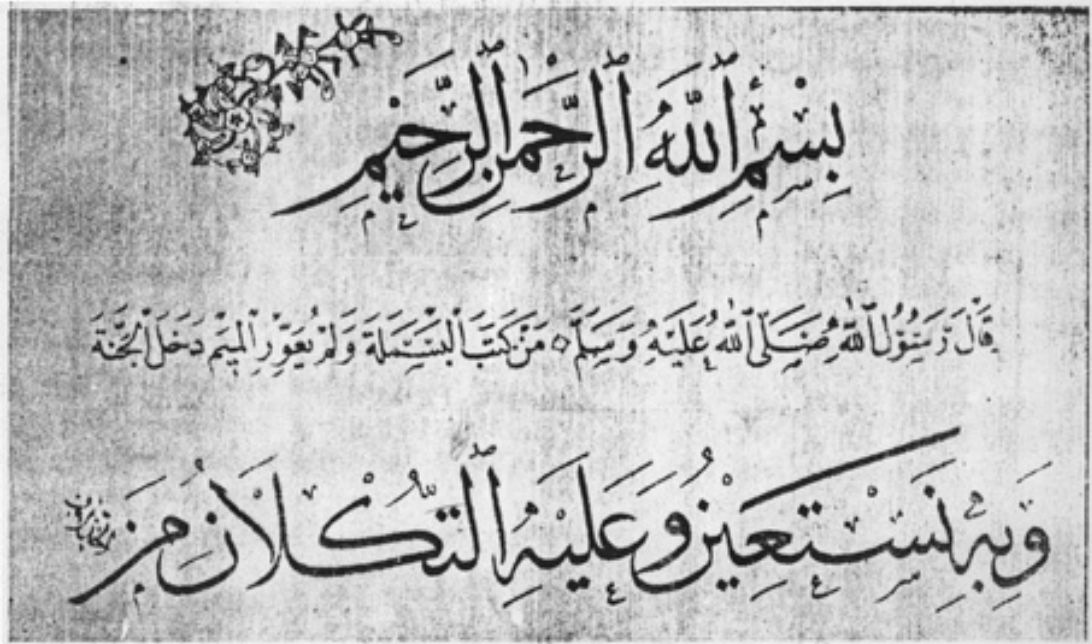 بِسْمِ ٱللَّهِ ٱلرَّحْمٰنِ ٱلرَّحِيْمِ
قَالَ رَسُوْلُ ٱللّٰهِ صَلَّى ٱللّٰهُ عَلَيْهِ وَسَلَّمَ مَنْ كَتَبَ الْبَسْمَلَةَ وَلَمْ يُعَوِّرِ الْمِيْمَ دَخَلَ الْجَنَّةَ
وَبِهِ نَسْتَعِيْنُ وَعَلَيْهِ ٱلتُّكْلَانُ